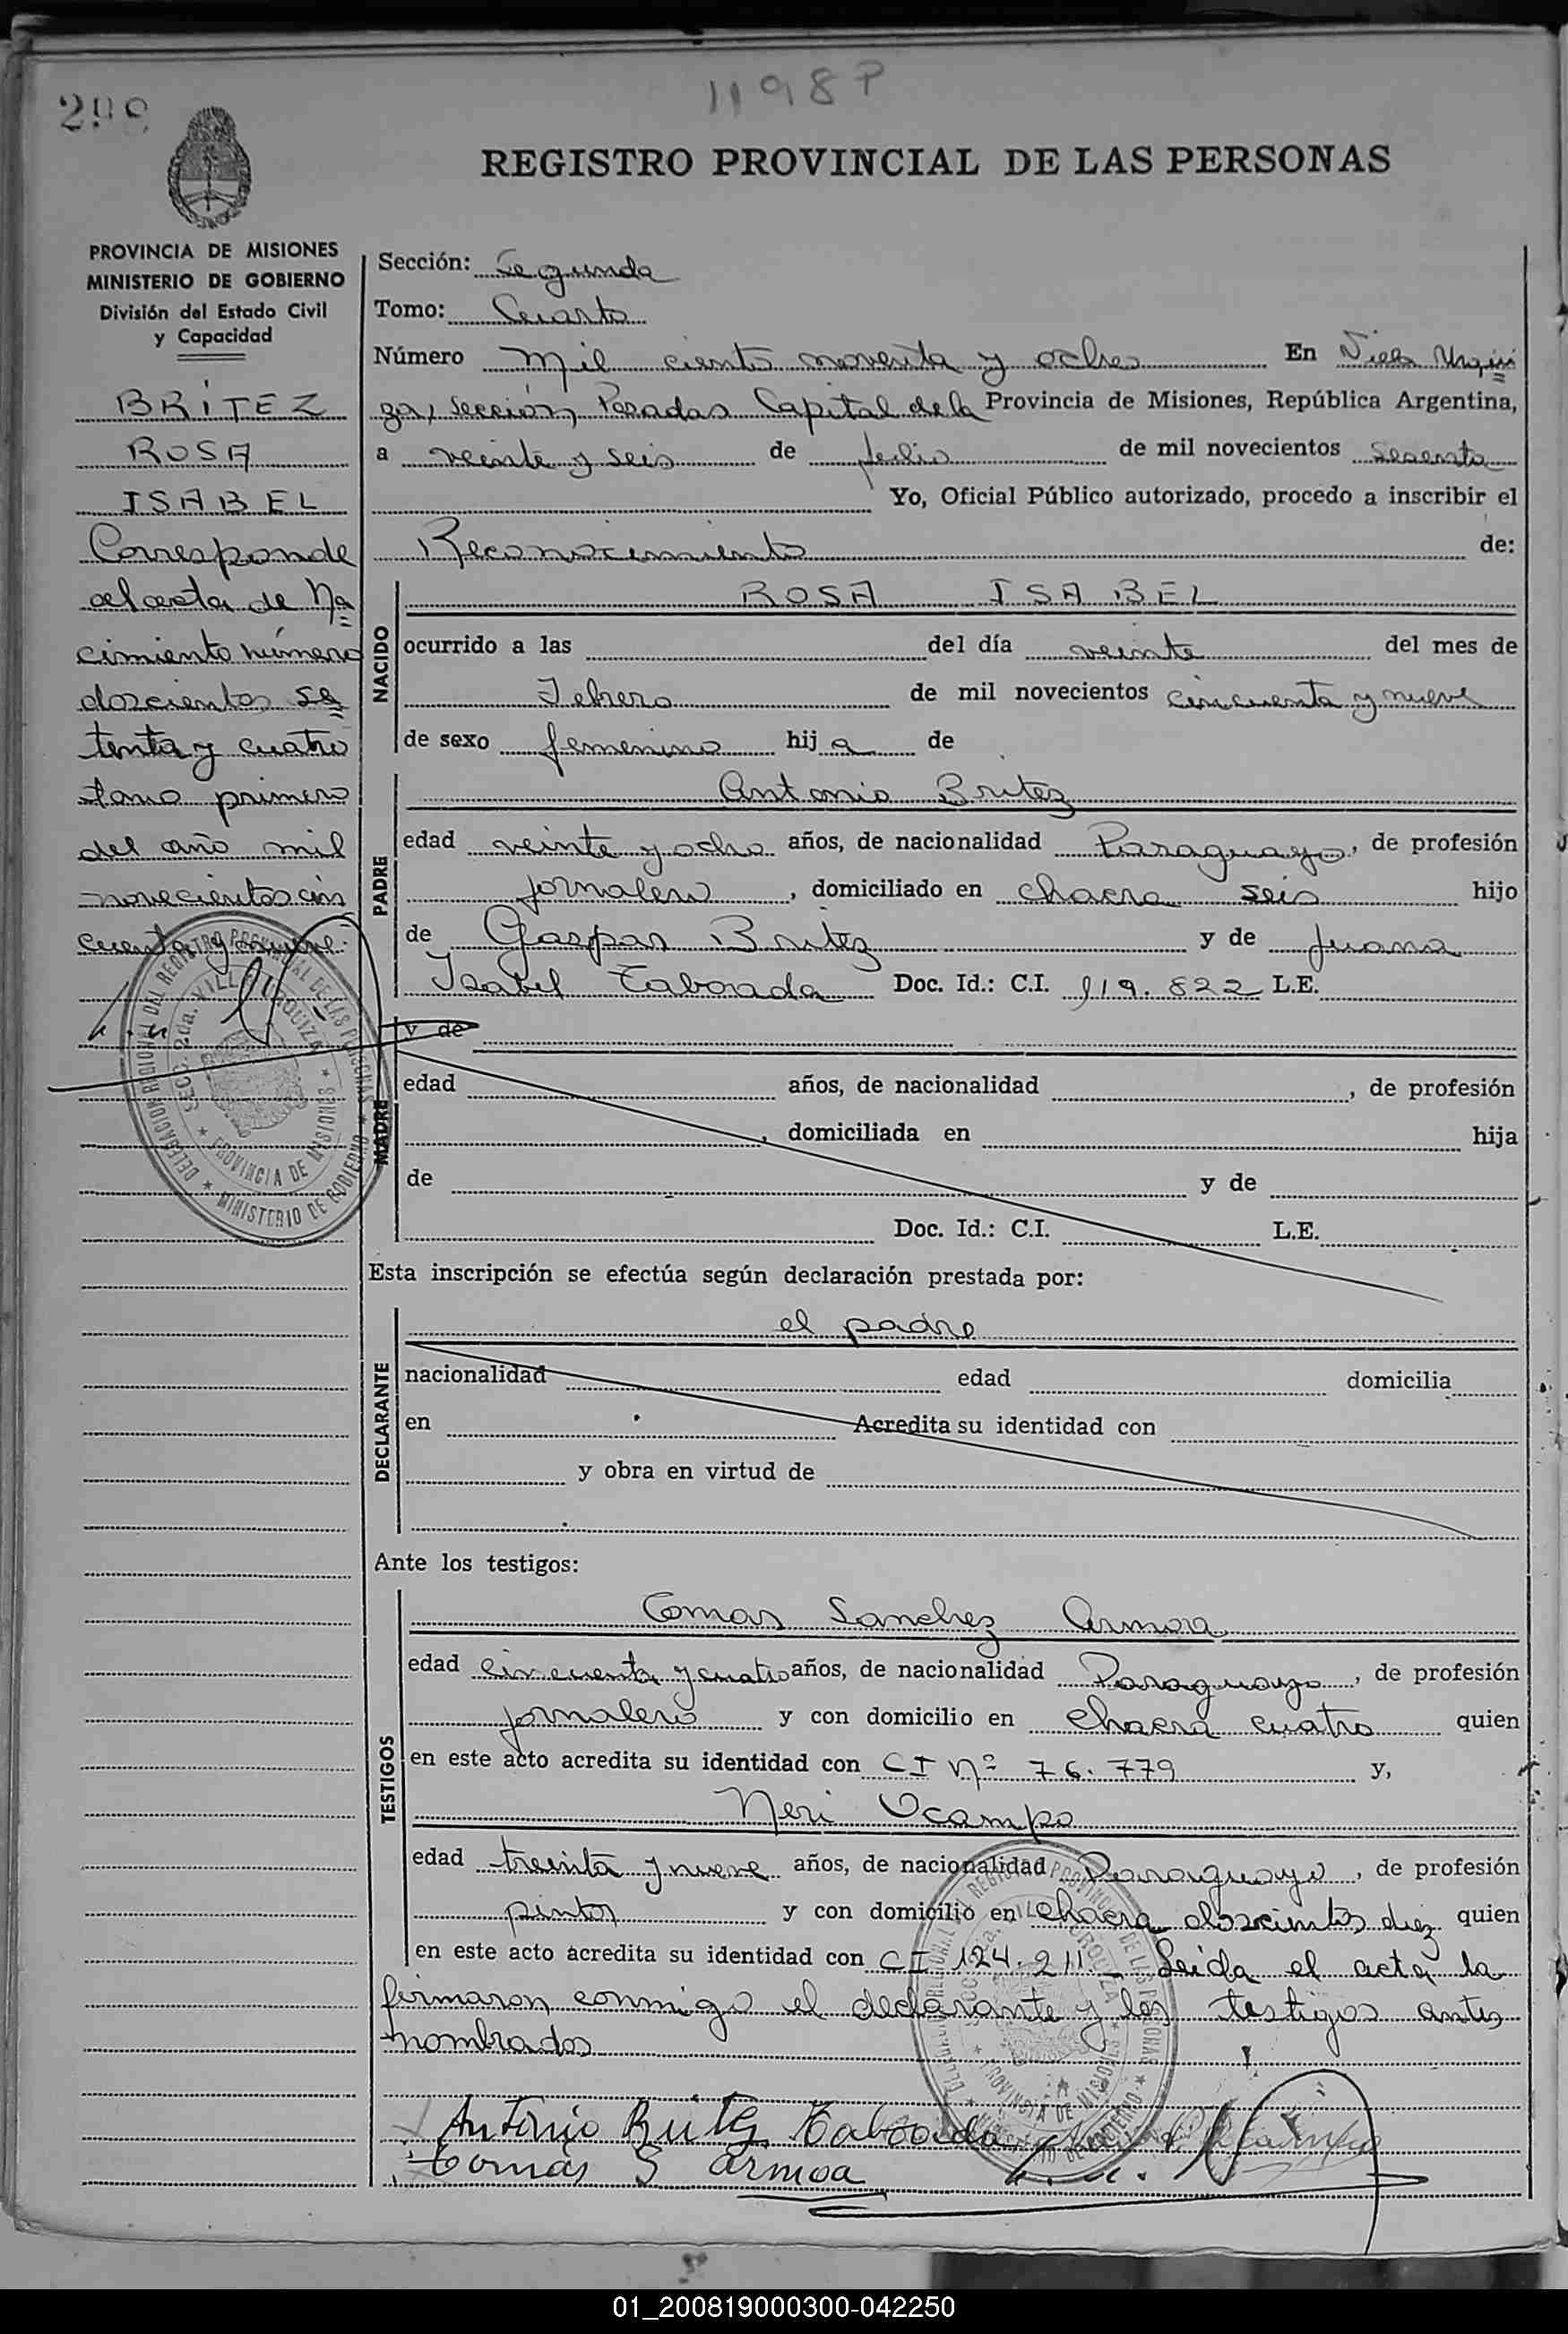 1198P
298
REGISTRO PROVINCIAL DE LAS PERSONAS
PROVINCIA DE MISIONES
MINISTERIO DE GOBIERNO
División del Estado Civil
y Capacidad
BRITEZ
ROSA
ISABEL
Corresponde
al acta de Na
cimiento número
doscientos se
tenta y cuatro
tomo primero
del año mil
novecientos cin
cuenta y nueve.
DELEGACION REGIONAL DEL REGISTRO PROVINCIAL DE LAS PERSONAS
SECC. 2da. VILLA URQUIZA
PROVINCIA DE MISIONES
MINISTERIO DE GOBIERNO
Sección: Segunda
Tomo: Cuarto
Número mil ciento noventa y ocho En Villa Urqui
za, Sección, Posadas Capital de la Provincia de Misiones, República Argentina,
a veinte y seis de Julio de mil novecientos sesenta
Yo, Oficial Público autorizado, procedo a inscribir el
Reconocimiento de:
NACIDO
ROSA ISABEL
ocurrido a las del día veinte del mes de
Febrero de mil novecientos cincuenta y nueve
de sexo femenino hij a de
PADRE
Antonio Britez
edad veinte y ocho años, de nacionalidad Paraguayo, de profesión
jornalero, domiciliado en chacra seis hijo
de Gaspar Britez y de Juana
Isabel Taborda Doc. Id.: C.I. 119.822 L.E.
MADRE
y de
edad años, de nacionalidad , de profesión
, domiciliada en hija
de y de
Doc. Id.: C.I. L.E.
Esta inscripción se efectúa según declaración prestada por:
DECLARANTE
el padre
nacionalidad edad domicilia
en Acredita su identidad con
y obra en virtud de
Ante los testigos:
TESTIGOS
Tomas Sanchez Armoa
edad cincuenta y cuatro años, de nacionalidad Paraguayo, de profesión
jornalero y con domicilio en chacra cuatro quien
en este acto acredita su identidad con CI Nº 76.779 y,
Neri Ocampo
edad treinta y nueve años, de nacionalidad Paraguayo, de profesión
pintor y con domicilio en chacra doscientos diez quien
en este acto acredita su identidad con CI 124.211 - Leida el acta la
firmaron conmigo el declarante y los testigos antes
nombrados
Antonio Britez Taboada
Tomás S Armoa
01_200819000300-042250